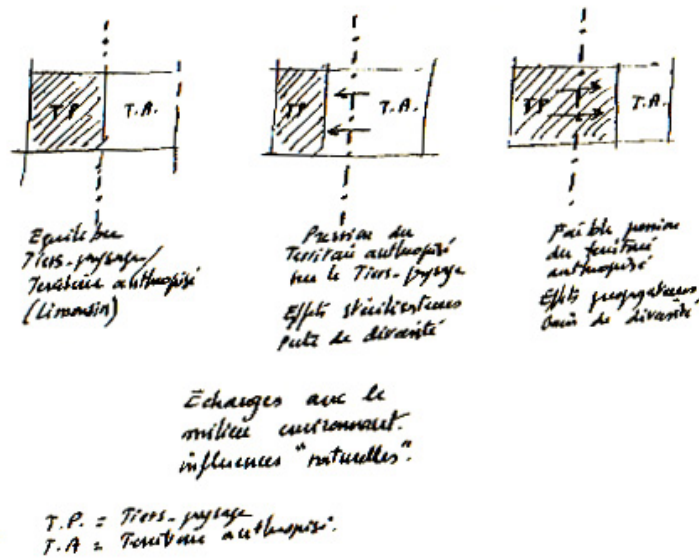 T.P.
T.A.
TP
T.A.
TP
T.A.
Equilibre
Tiers-paysage/
Territoire anthropisé
(Limousin)
Pression du
Territoire anthropisé
sur le Tiers-paysage
Effets stérilisateurs
perte de diversité
Faible pression
du territoire
anthropisé
Effets propagateurs
Gain de diversité
Echanges avec le
milieu environnant.
influences "naturelles".
T.P. = Tiers-paysage
T.A = Territoire anthropisé.